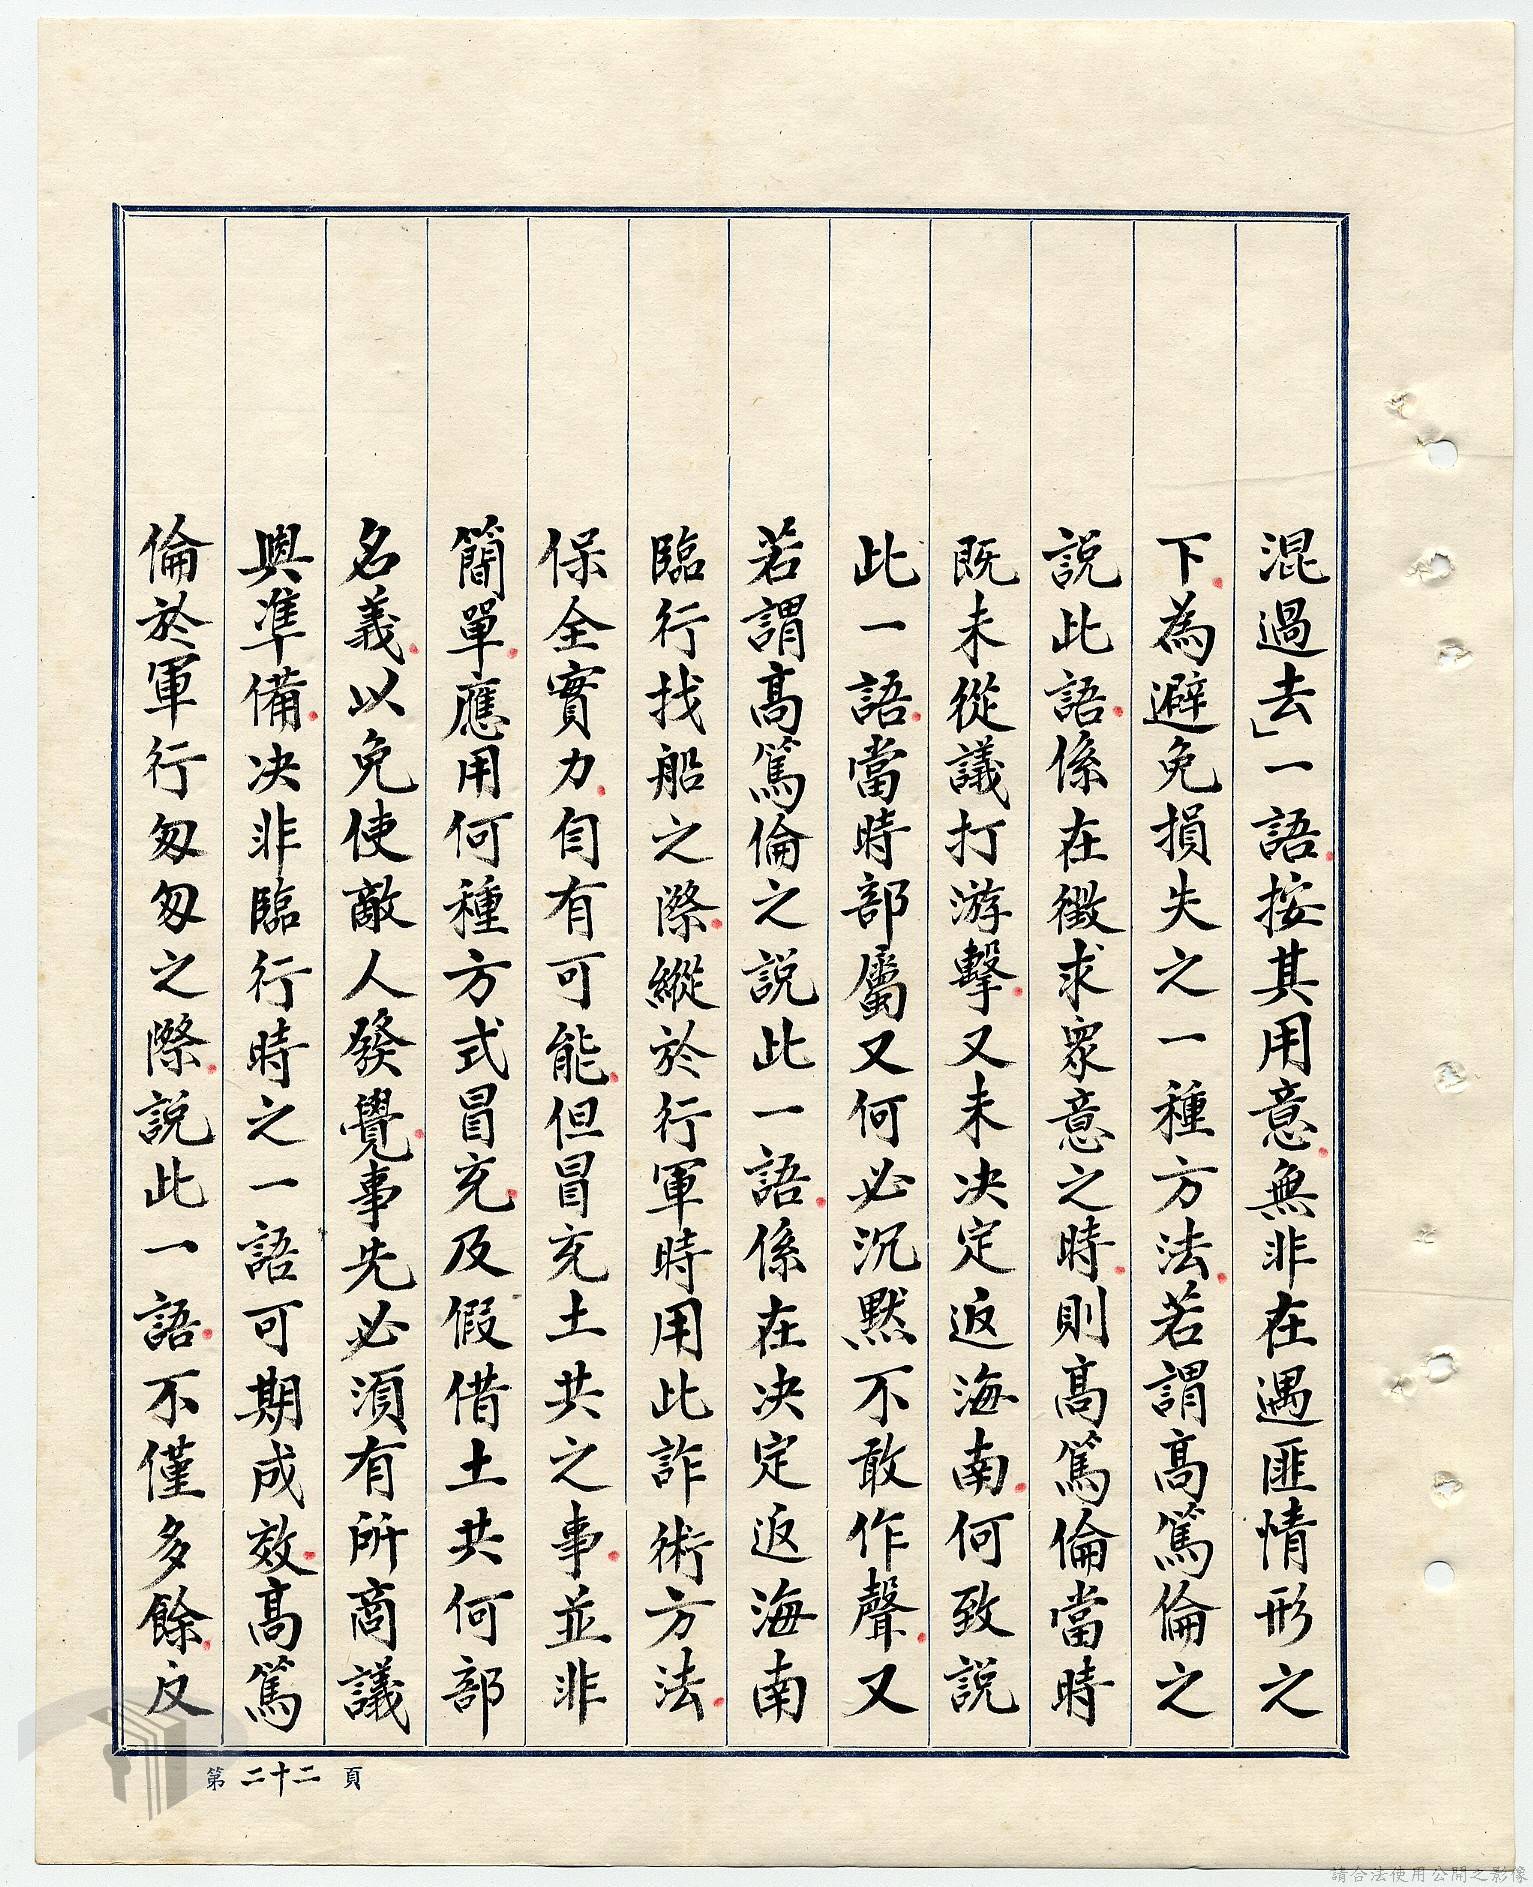 混過去」一語.按其用意.無非在遇匪情形之
下.為避免損失之一種方法.若謂高篤倫之
說此語.係在徵求眾意之時.則高篤倫當時
既未從議打游擊.又未決定返海南.何致說
此一語.當時部屬又何必沉默不敢作聲.又
若謂高篤倫之說此一語.係在決定返海南
臨行找船之際.縱於行軍時用此詐術方法.
保全實力.自有可能.但冒充土共之事.並非
簡單.應用何種方式冒充.及假借土共何部
名義.以免使敵人發覺.事先必須有所商議
與準備.決非臨行時之一語可期成效.高篤
倫於軍行匆匆之際.說此一語.不僅多餘.反
第二十二頁
請合法使用公開之影像